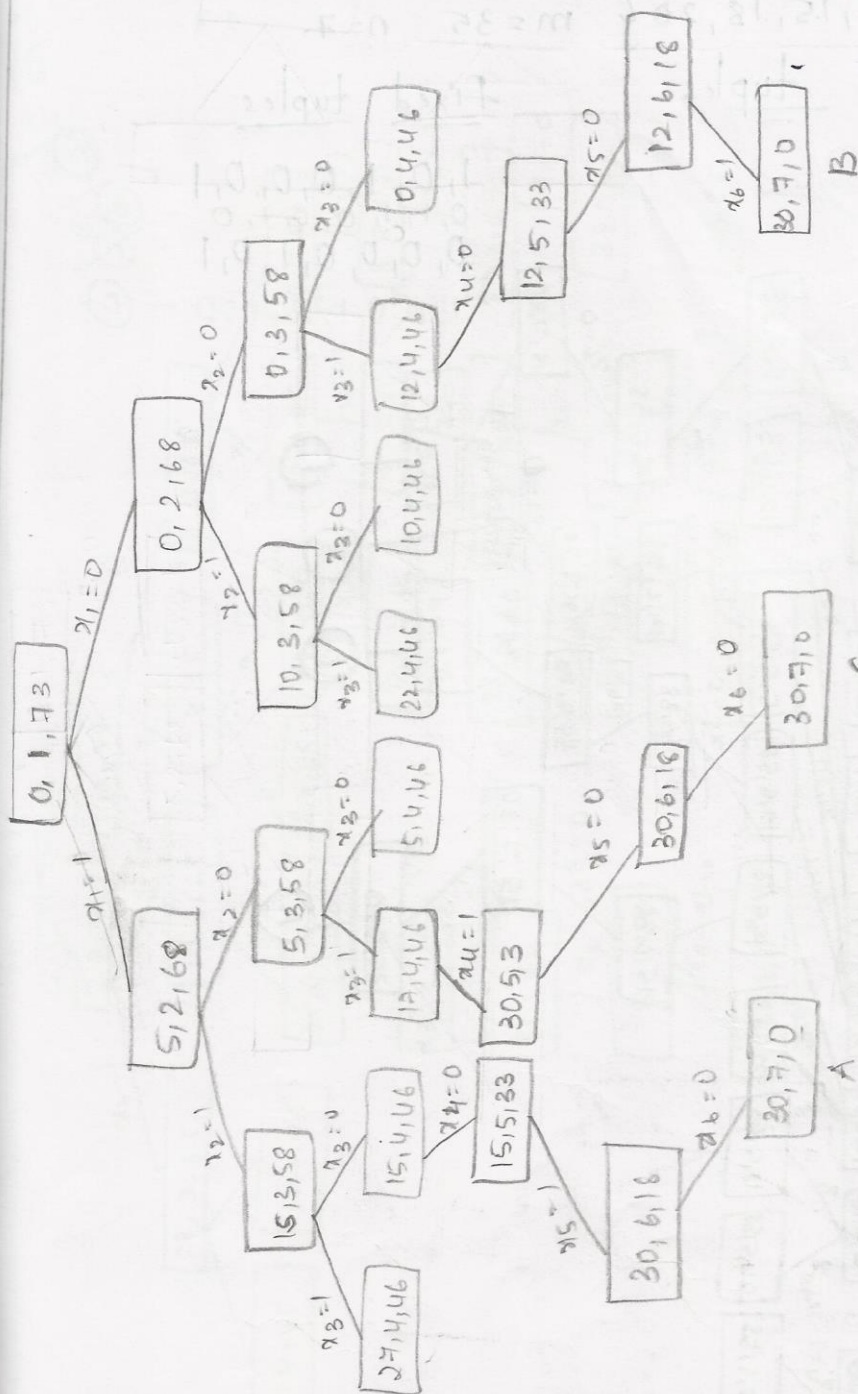 0, 1, 73
x1=1
x1=0
5, 2, 68
0, 2, 68
x2=1
x2=0
x2=1
x2=0
15, 3, 58
5, 3, 58
10, 3, 58
0, 3, 58
x3=1
x3=0
x3=1
x3=0
x3=1
x3=0
x3=1
x3=0
27, 4, 46
15, 4, 46
17, 4, 46
5, 4, 46
22, 4, 46
10, 4, 46
12, 4, 46
0, 4, 46
x4=0
x4=1
x4=0
15, 5, 33
30, 5, 3
12, 5, 33
x5=1
x5=0
x5=0
30, 6, 18
30, 6, 18
12, 6, 18
x6=0
x6=0
x6=1
30, 7, 0
30, 7, 0
30, 7, 0
A
B